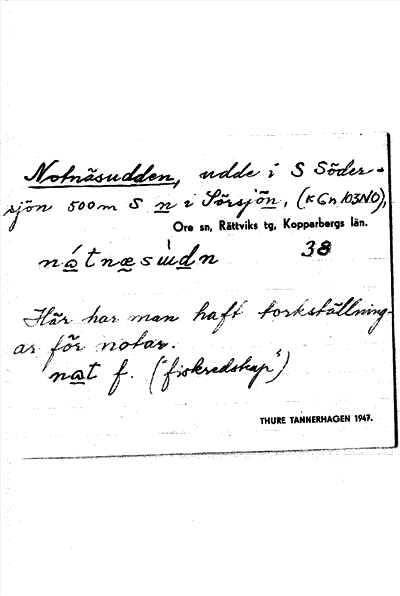 Notnäsudden, udde i S Söder-
sjön 500m S n i Sörsjön, (KGn 103NO),
Ore sn, Rättviks tg, Kopparbergs län.
nátnæsùdn 38
Här har man haft torkställning-
ar för notar.
nat f. ("fiskredskap")
THURE TANNERHAGEN 1947.